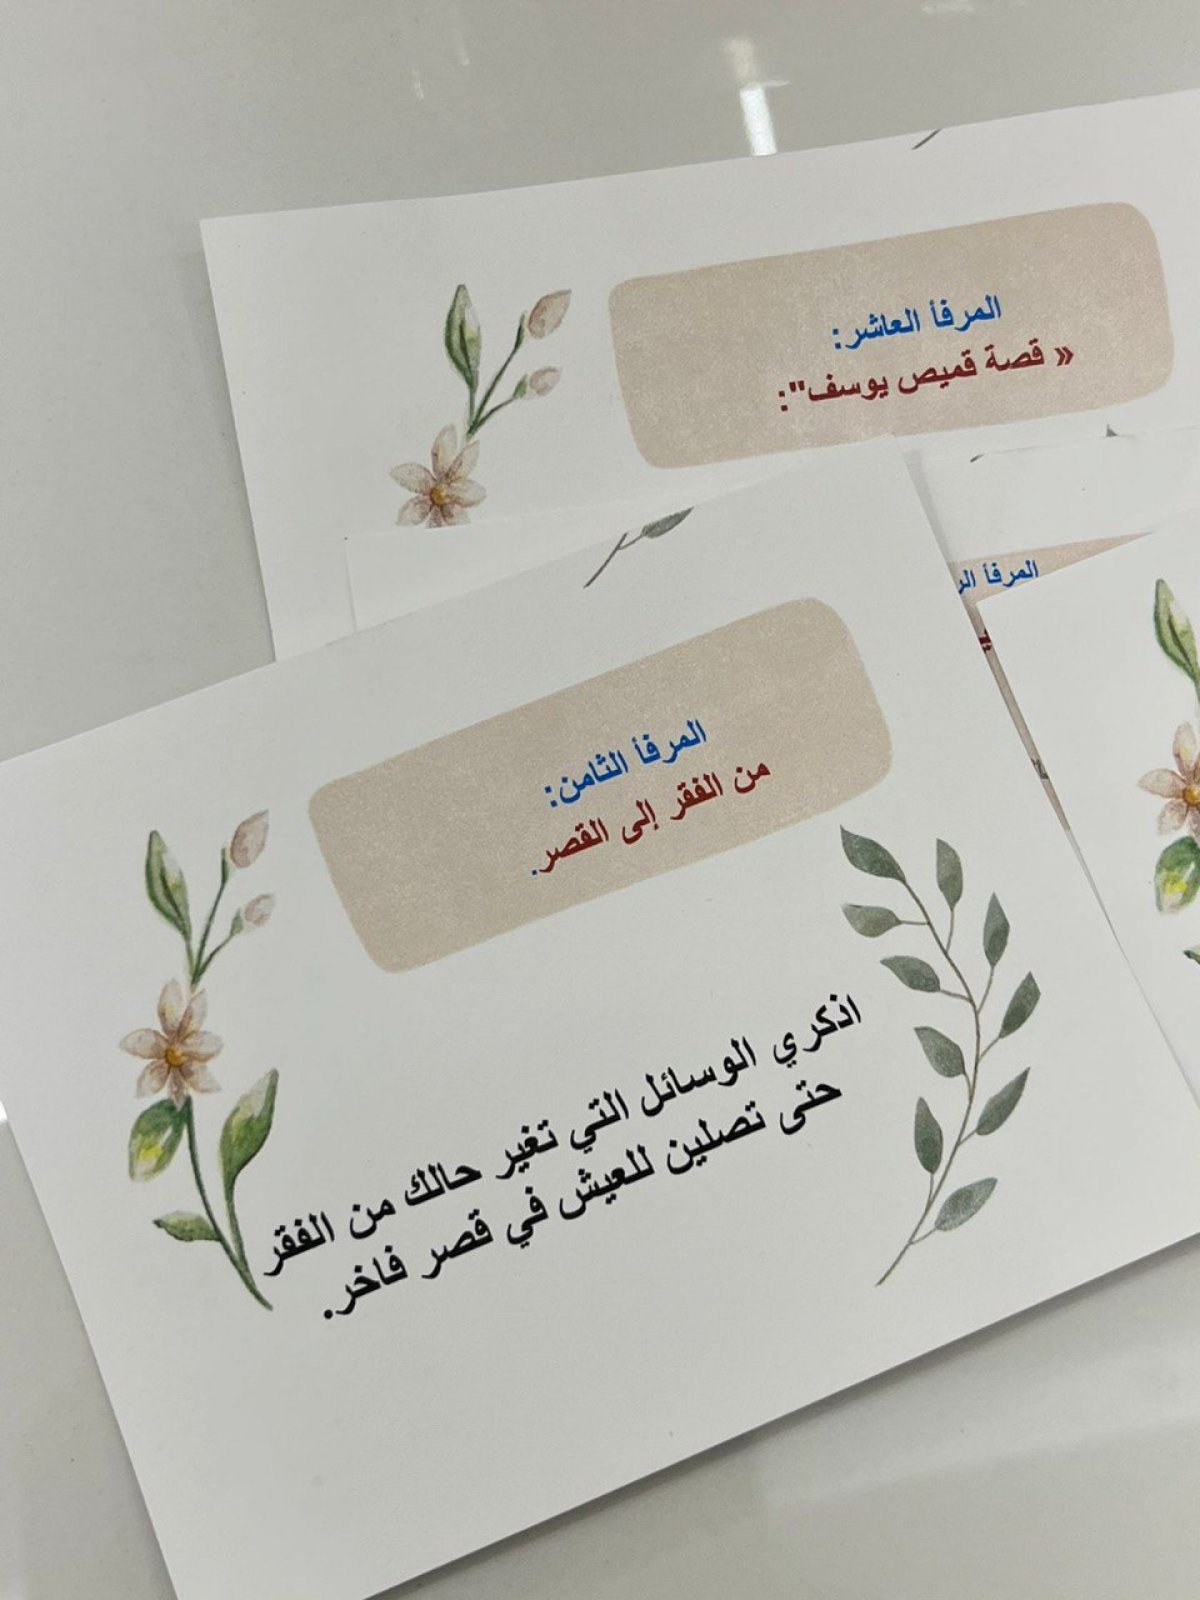 المرفأ العاشر:
« قصة قميص يوسف":
المرفأ
المرفأ الثامن:
من الفقر إلى القصر.
اذكري الوسائل التي تغير حالك من الفقر
حتى تصلين للعيش في قصر فاخر.